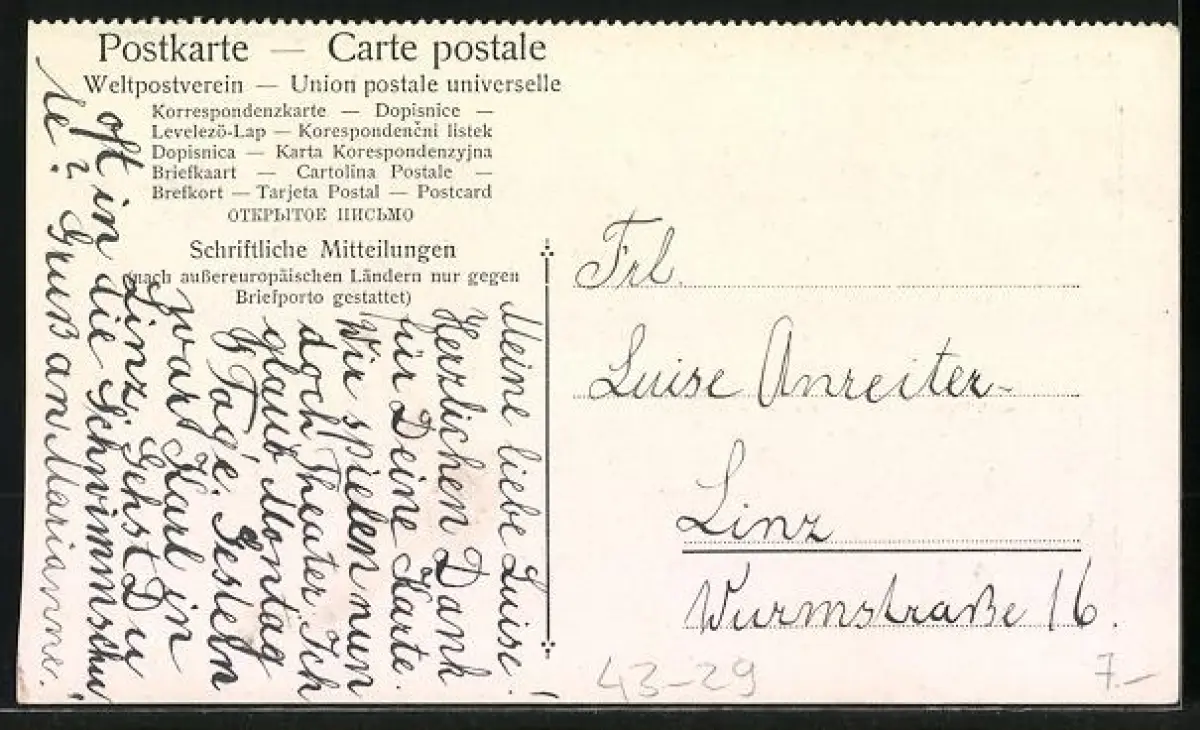 Postkarte — Carte postale
Weltpostverein — Union postale universelle
Korrespondenzkarte — Dopisnice —
Levelezö-Lap — Korespondenčni listek
Dopisnica — Karta Korespondenzyjna
Briefkaart — Cartolina Postale —
Brefkort — Tarjeta Postal — Postcard
ОТКРЫТОЕ ПИСЬМО
Schriftliche Mitteilungen
(nach außereuropäischen Ländern nur gegen
Briefporto gestattet)
Meine liebe Luise!
Herzlichen Dank
für Deine Karte.
Wir spielen nun
doch Theater. Ich
glaub Montag
Tag's. Gestern
zwar Karl in
Linz. Gehst Du
oft in die Schwimmschu
le? Gruß an Marianne.
Frl.
Luise Anreiter
Linz
Wurmstraße 16.
43-29
7.-